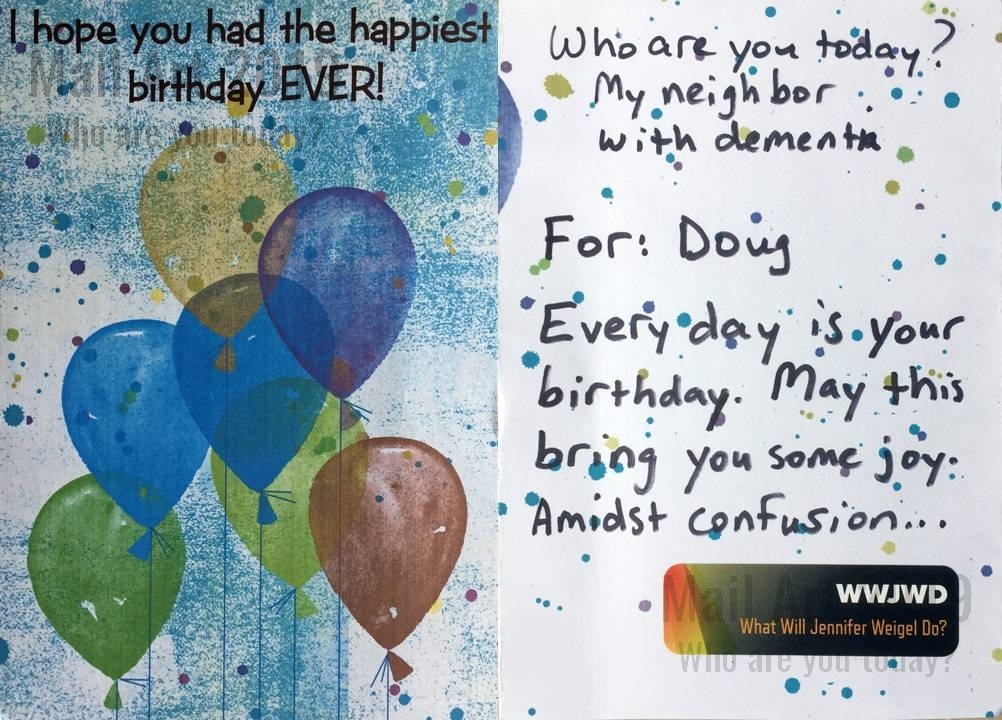 I hope you had the happiest
birthday EVER!
Who are you today?
Who are you today?
My neighbor
with dementia
For: Doug
Every day is your
birthday. May this
bring you some joy.
Amidst confusion...
WWJWD
What Will Jennifer Weigel Do?
Who are you today?